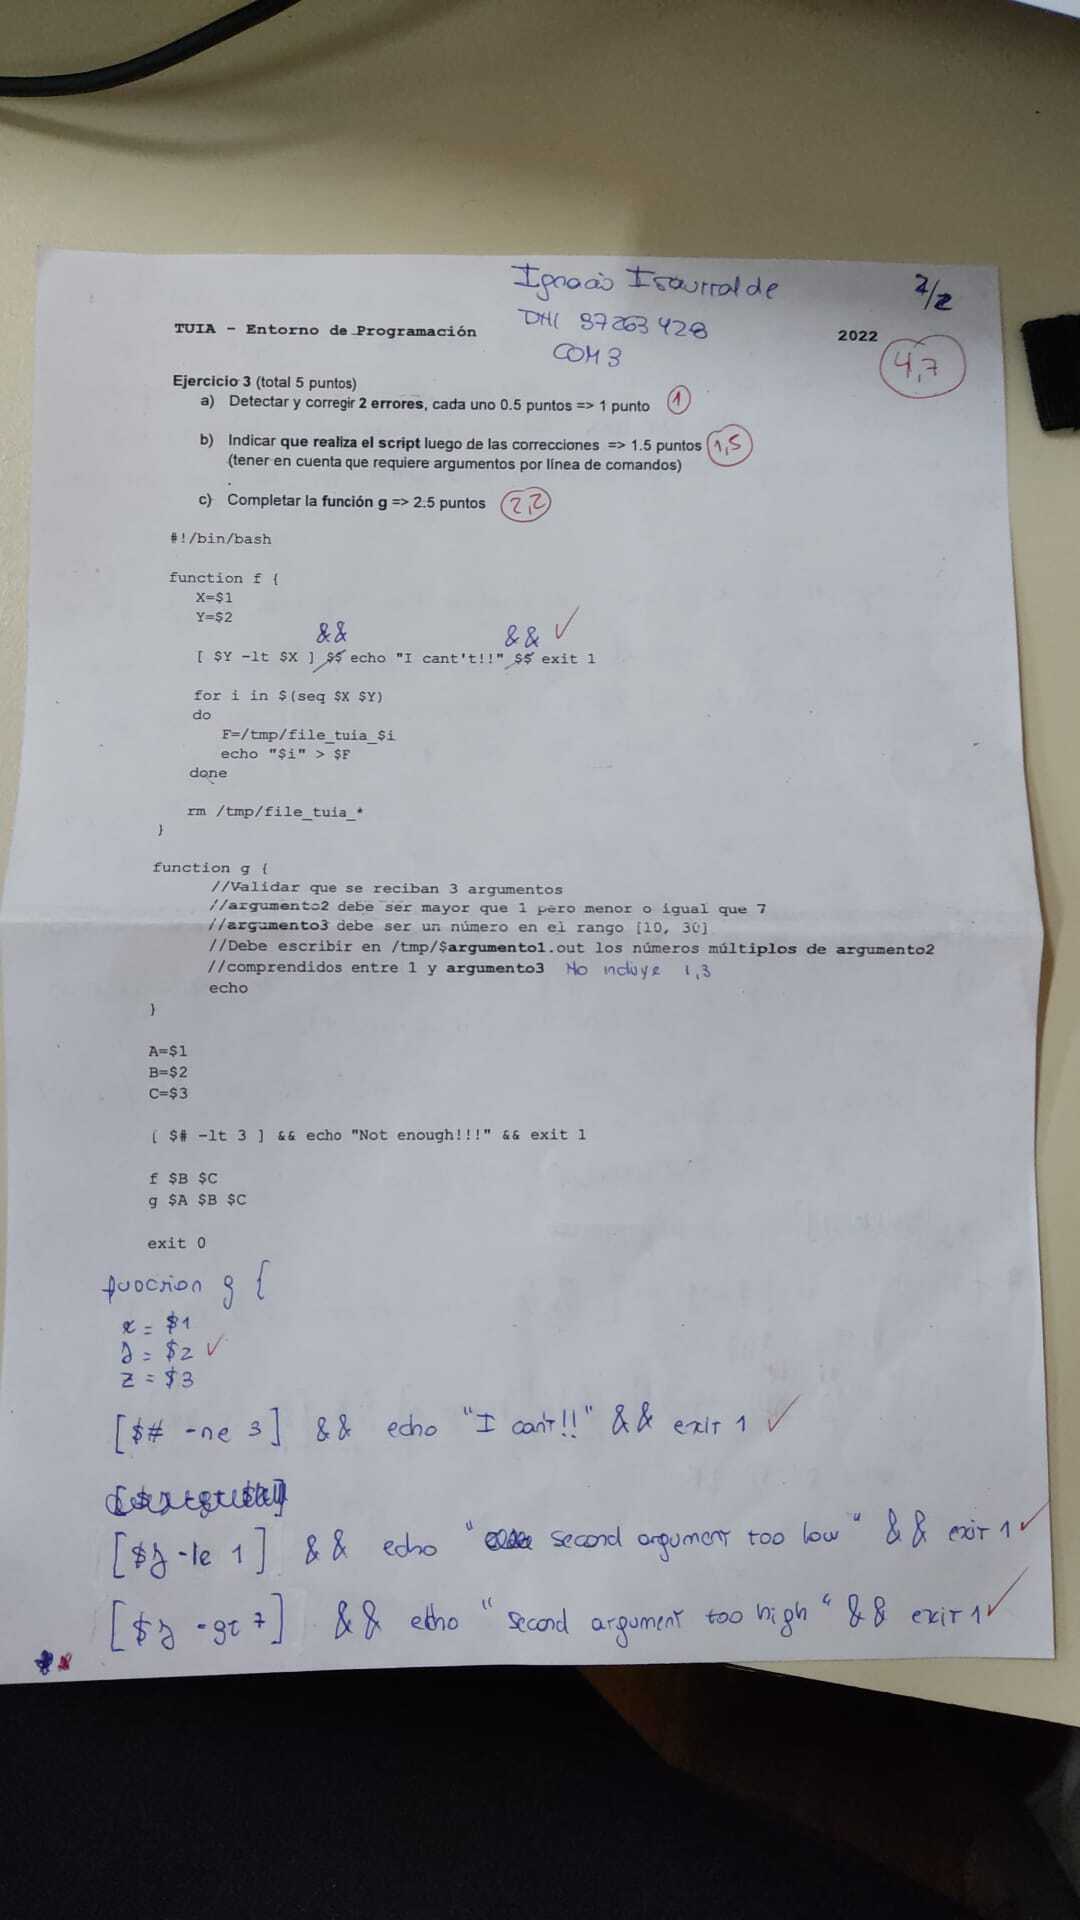 Ignacio Isaurralde
2/2
DNI 37263428
TUIA - Entorno de Programación
2022
COM 3
4,7
Ejercicio 3 (total 5 puntos)
a) Detectar y corregir 2 errores, cada uno 0.5 puntos => 1 punto 1
b) Indicar que realiza el script luego de las correcciones => 1.5 puntos 1,5
(tener en cuenta que requiere argumentos por línea de comandos)
c) Completar la función g => 2.5 puntos 2,2
#!/bin/bash
function f {
X=$1
Y=$2
&& && ✓
[ $Y -lt $X ] $$ echo "I cant't!!" $$ exit 1
for i in $(seq $X $Y)
do
F=/tmp/file_tuia_$i
echo "$i" > $F
done
rm /tmp/file_tuia_*
}
function g {
//Validar que se reciban 3 argumentos
//argumento2 debe ser mayor que 1 pero menor o igual que 7
//argumento3 debe ser un número en el rango [10, 30]
//Debe escribir en /tmp/$argumento1.out los números múltiplos de argumento2
//comprendidos entre 1 y argumento3 No incluye 1,3
echo
}
A=$1
B=$2
C=$3
[ $# -lt 3 ] && echo "Not enough!!!" && exit 1
f $B $C
g $A $B $C
exit 0
function g {
x = $1
y = $2 ✓
z = $3
[$# -ne 3] && echo "I can't!!" && exit 1 ✓
[$y -le 1] && echo " second argument too low " && exit 1 ✓
[$y -gt 7] && echo " second argument too high " && exit 1 ✓